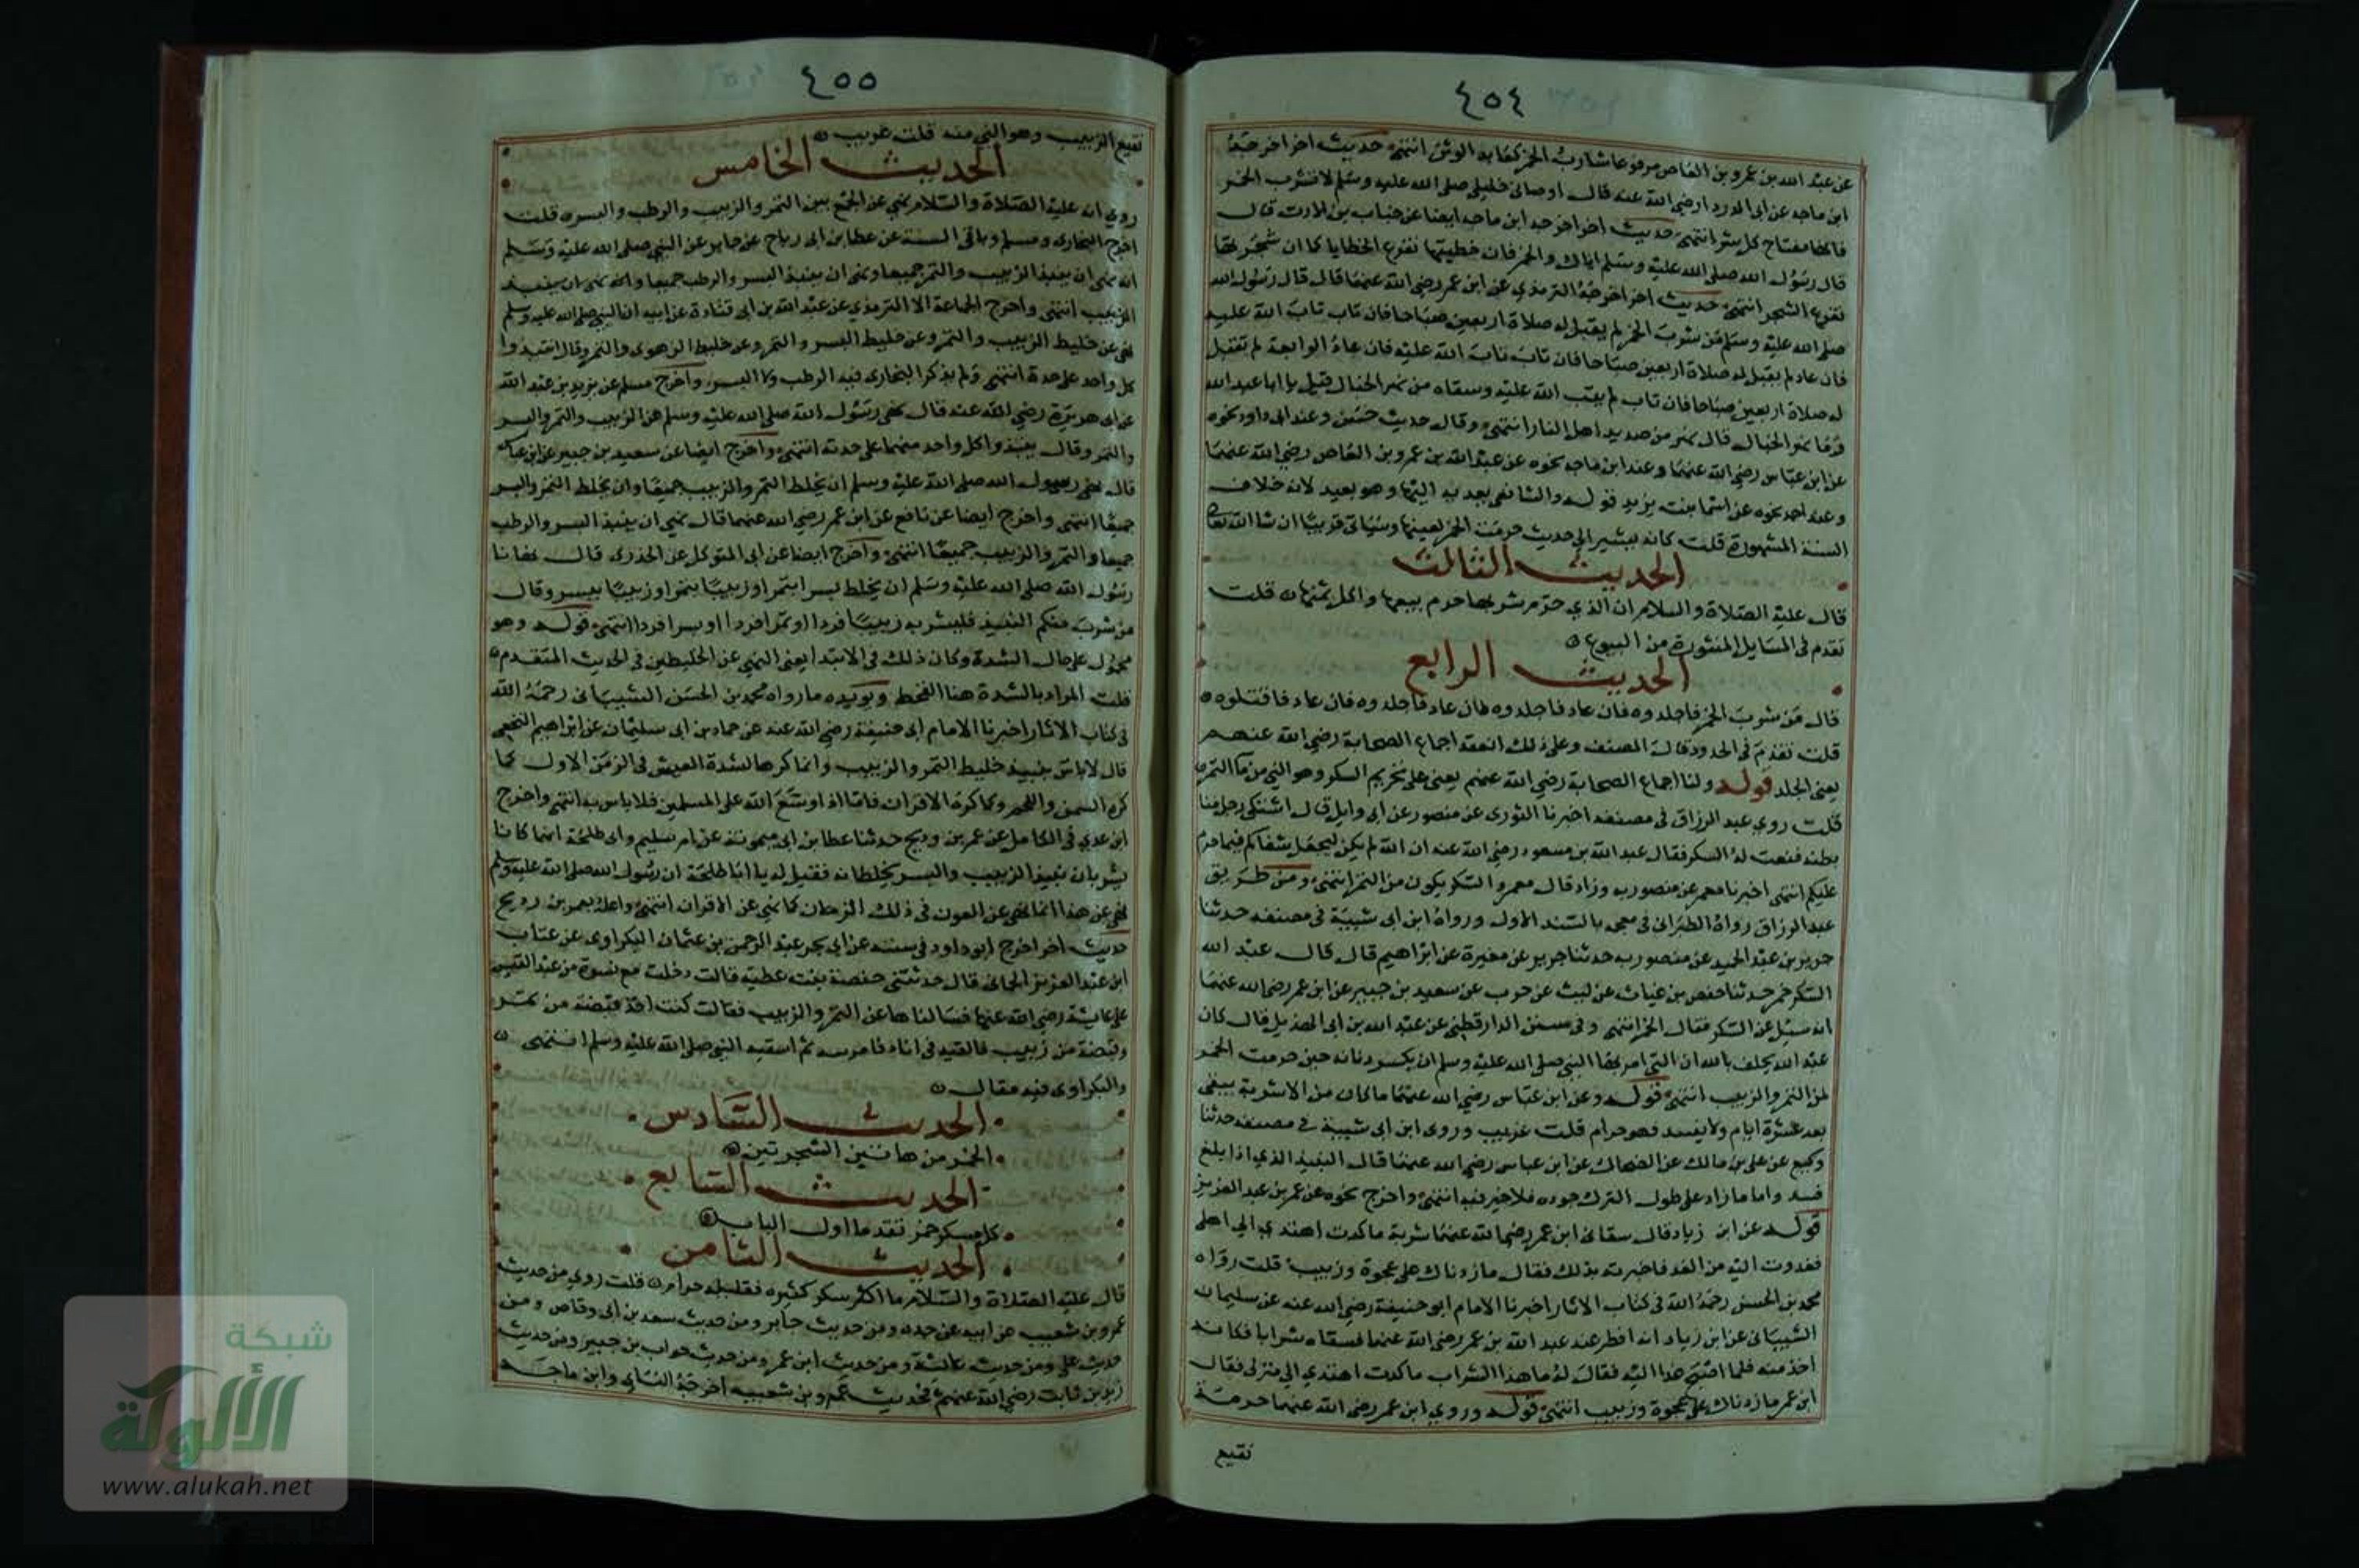 ٤٥٤
عن عبد الله بن عمرو بن العاص مرفوعا شارب الخمر كعابد الوثن انتهى حديث اخر اخرجه
ابن ماجه عن ابى الدرداء رضي الله عنه قال اوصانى خليلى صلى الله عليه وسلم لا تشرب الخمر
فانها مفتاح كل شر انتهى حديث اخر اخرجه ابن ماجه ايضا عن خباب بن الارت قال
قال رسول الله صلى الله عليه وسلم اياك والخمر فان خطيئتها تفرع الخطايا كما ان شجرتها
تفرع الشجر انتهى حديث اخر اخرجه الترمذي عن ابن عمر رضي الله عنهما قال قال رسول الله
صلى الله عليه وسلم من شرب الخمر لم يقبل له صلاة اربعين صباحا فان تاب تاب الله عليه
فان عاد لم يقبل له صلاة اربعين صباحا فان تاب تاب الله عليه فان عاد الرابعة لم تقبل
له صلاة اربعين صباحا فان تاب لم يتب الله عليه وسقاه من نهر الخبال قيل يا ابا عبد الله
وما نهر الخبال قال نهر من صديد اهل النار انتهى وقال حديث حسن وعند ابى داود نحوه
عن ابن عباس رضي الله عنهما وعند ابن ماجه نحوه عن عبد الله بن عمرو بن العاص رضي الله عنهما
وعند احمد نحوه عن اسما بنت يزيد قوله والشافعى يعديه اليها وهو بعيد لانه خلاف
السنة المشهورة قلت كانه يشير الى حديث حرمت الخمر لعينها وسياتى قريبا ان شا الله تعالى
الحديث الثالث
قال عليه الصلاة والسلام ان الذي حرم شربها حرم بيعها واكل ثمنها قلت
تقدم فى المسايل المنثورة من البيوع
الحديث الرابع
قال من شرب الخمر فاجلدوه فان عاد فاجلدوه فان عاد فاجلدوه فان عاد فاقتلوه
قلت تقدم فى الحدود قال المصنف وعلى ذلك انعقد اجماع الصحابة رضي الله عنهم
يعنى الجلد قوله ولنا اجماع الصحابة رضي الله عنهم يعنى على تحريم السكر وهو الني من ما التمر
قلت روى عبد الرزاق فى مصنفه اخبرنا الثورى عن منصور عن ابى وايل قال اشتكى رجل منا
بطنه فنعت له السكر فقال عبد الله بن مسعود رضي الله عنه ان الله لم يكن ليجعل شفاكم فيما حرم
عليكم انتهى اخبرنا معمر عن منصور به وزاد قال معمر والسكر يكون من التمر انتهى ومن طريق
عبد الرزاق رواه الطبرانى فى معجمه بالسند الاول ورواه ابن ابى شيبة فى مصنفه حدثنا
جرير بن عبد الحميد عن منصور به حدثنا جرير عن مغيرة عن ابراهيم قال قال عبد الله
السكر خمر حدثنا حفص بن غياث عن ليث عن حرب عن سعيد بن جبير عن ابن عمر رضي الله عنهما
انه سئل عن السكر فقال الخمر انتهى وفى سنن الدارقطنى عن عبد الله بن ابى الهذيل قال كان
عبد الله يحلف بالله ان التى امر بها النبي صلى الله عليه وسلم ان يكسر دنانه حين حرمت الخمر
لمن التمر والزبيب انتهى قوله وعن ابن عباس رضي الله عنهما ما كان من الاشربة يبقى
بعد عشرة ايام ولا يفسد فهو حرام قلت غريب وروى ابن ابى شيبة فى مصنفه حدثنا
وكيع عن على بن مالك عن الضحاك عن ابن عباس رضي الله عنهما قال النبيذ الذي اذا بلغ
فسد واما ما زاد على طول الترك جوده فلا خير فيه انتهى واخرج نحوه عن عمر بن عبد العزيز
قوله عن ابن زياد قال سقانى ابن عمر رضي الله عنهما شربة ما كدت اهتدي الى اهلى
فغدوت اليه من الغد فاخبرته بذلك فقال ما زدناك على عجوة وزبيب قلت رواه
محمد بن الحسن رحمه الله فى كتاب الاثار اخبرنا الامام ابو حنيفة رضي الله عنه عن سليمان
الشيبانى عن ابن زياد انه افطر عند عبد الله بن عمر رضي الله عنهما فسقاه شرابا فكانه
اخذ منه فلما اصبح غدا اليه فقال له ما هذا الشراب ما كدت اهتدي الى منزلى فقال
ابن عمر ما زدناك على عجوة وزبيب انتهى قوله وروى ابن عمر رضي الله عنهما حرمة
نقيع
٤٥٥
نقيع الزبيب وهو الني منه قلت غريب
الحديث الخامس
روى انه عليه الصلاة والسلام نهى عن الجمع بين التمر والزبيب والرطب والبسر قلت
اخرج البخارى ومسلم وباقى الستة عن عطا بن ابى رباح عن جابر عن النبي صلى الله عليه وسلم
انه نهى ان ينبذ الزبيب والتمر جميعا ونهى ان ينبذ البسر والرطب جميعا
الزبيب انتهى واخرج الجماعة الا الترمذى عن عبد الله بن ابى قتادة عن ابيه ان النبي صلى الله عليه وسلم
نهى عن خليط الزبيب والتمر وعن خليط البسر والتمر وعن خليط الزهو والتمر وقال انتبذوا
كل واحد على حدة انتهى ولم يذكر البخارى فيه الرطب ولا البسر واخرج مسلم عن يزيد بن عبد الله
عن ابى هريرة رضي الله عنه قال نهى رسول الله صلى الله عليه وسلم عن الزبيب والتمر والبسر
والتمر وقال ينبذوا كل واحد منهما على حدته انتهى واخرج ايضا عن سعيد بن جبير عن ابن عباس
قال نهى رسول الله صلى الله عليه وسلم ان يخلط التمر والزبيب جميعا وان يخلط التمر والبسر
جميعا انتهى واخرج ايضا عن نافع عن ابن عمر رضي الله عنهما قال نهى ان ينبذ البسر والرطب
جميعا والتمر والزبيب جميعا انتهى واخرج ايضا عن ابى المتوكل عن الخدرى قال نهانا
رسول الله صلى الله عليه وسلم ان يخلط بسرا بتمر او زبيبا بتمر او زبيبا ببسر وقال
من شرب منكم النبيذ فليشربه زبيبا فردا او تمرا فردا او بسرا فردا انتهى قوله وهو
محمول على حال الشدة وكان ذلك فى الابتدا يعنى النهي عن الخليطين فى الحديث المتقدم
قلت المراد بالشدة هنا القحط ويويده ما رواه محمد بن الحسن الشيبانى رحمه الله
فى كتاب الاثار اخبرنا الامام ابى حنيفة رضي الله عنه عن حماد بن ابى سليمان عن ابراهيم النخعى
قال لا باس بنبيذ خليط التمر والزبيب وانما كرها لشدة العيش فى الزمن الاول كما
كره السمن واللحم وكما كره الاقران فاما اذا وسع الله على المسلمين فلا باس به انتهى واخرج
ابن عدي فى الكامل عن عمر بن رديح حدثنا عطا بن ابى ميمونة عن ام سليم وابى طلحة انهما كانا
يشربان نبيذ الزبيب والبسر يخلطانه فقيل له يا ابا طلحة ان رسول الله صلى الله عليه وسلم
نهى عن هذا انما نهى عن العون فى ذلك الزمان كما نهى عن الاقران انتهى واعله بعمر بن رديح
حديث اخر اخرج ابو داود فى سننه عن ابى بحر عبد الرحمن بن عثمان البكراوى عن عتاب
ابن عبد العزيز الحمانى قال حدثتنى صفية بنت عطية قالت دخلت مع نسوة من عبد القيس
على عايشة رضي الله عنها فسالناها عن التمر والزبيب فقالت كنت اخذ قبضة من تمر
وقبضة من زبيب فالقيه فى اناء فامرسه ثم اسقيه النبي صلى الله عليه وسلم انتهى
والبكراوى فيه مقال
الحديث السادس
الخمر من هاتين الشجرتين
الحديث السابع
كل مسكر خمر تقدما اول الباب
الحديث الثامن
قال عليه الصلاة والسلام ما اكثر سكر كثيره فقليله حرام قلت روى من حديث
عمرو بن شعيب عن ابيه عن جده ومن حديث جابر ومن حديث سعد بن ابى وقاص ومن
حديث على ومن حديث عائشة ومن حديث ابن عمر ومن حديث خوات بن جبير ومن حديث
زيد بن ثابت رضي الله عنهم فحديث عمرو بن شعيب اخرجه النساي وابن ماجه
شبكة
الألوكة
www.alukah.net